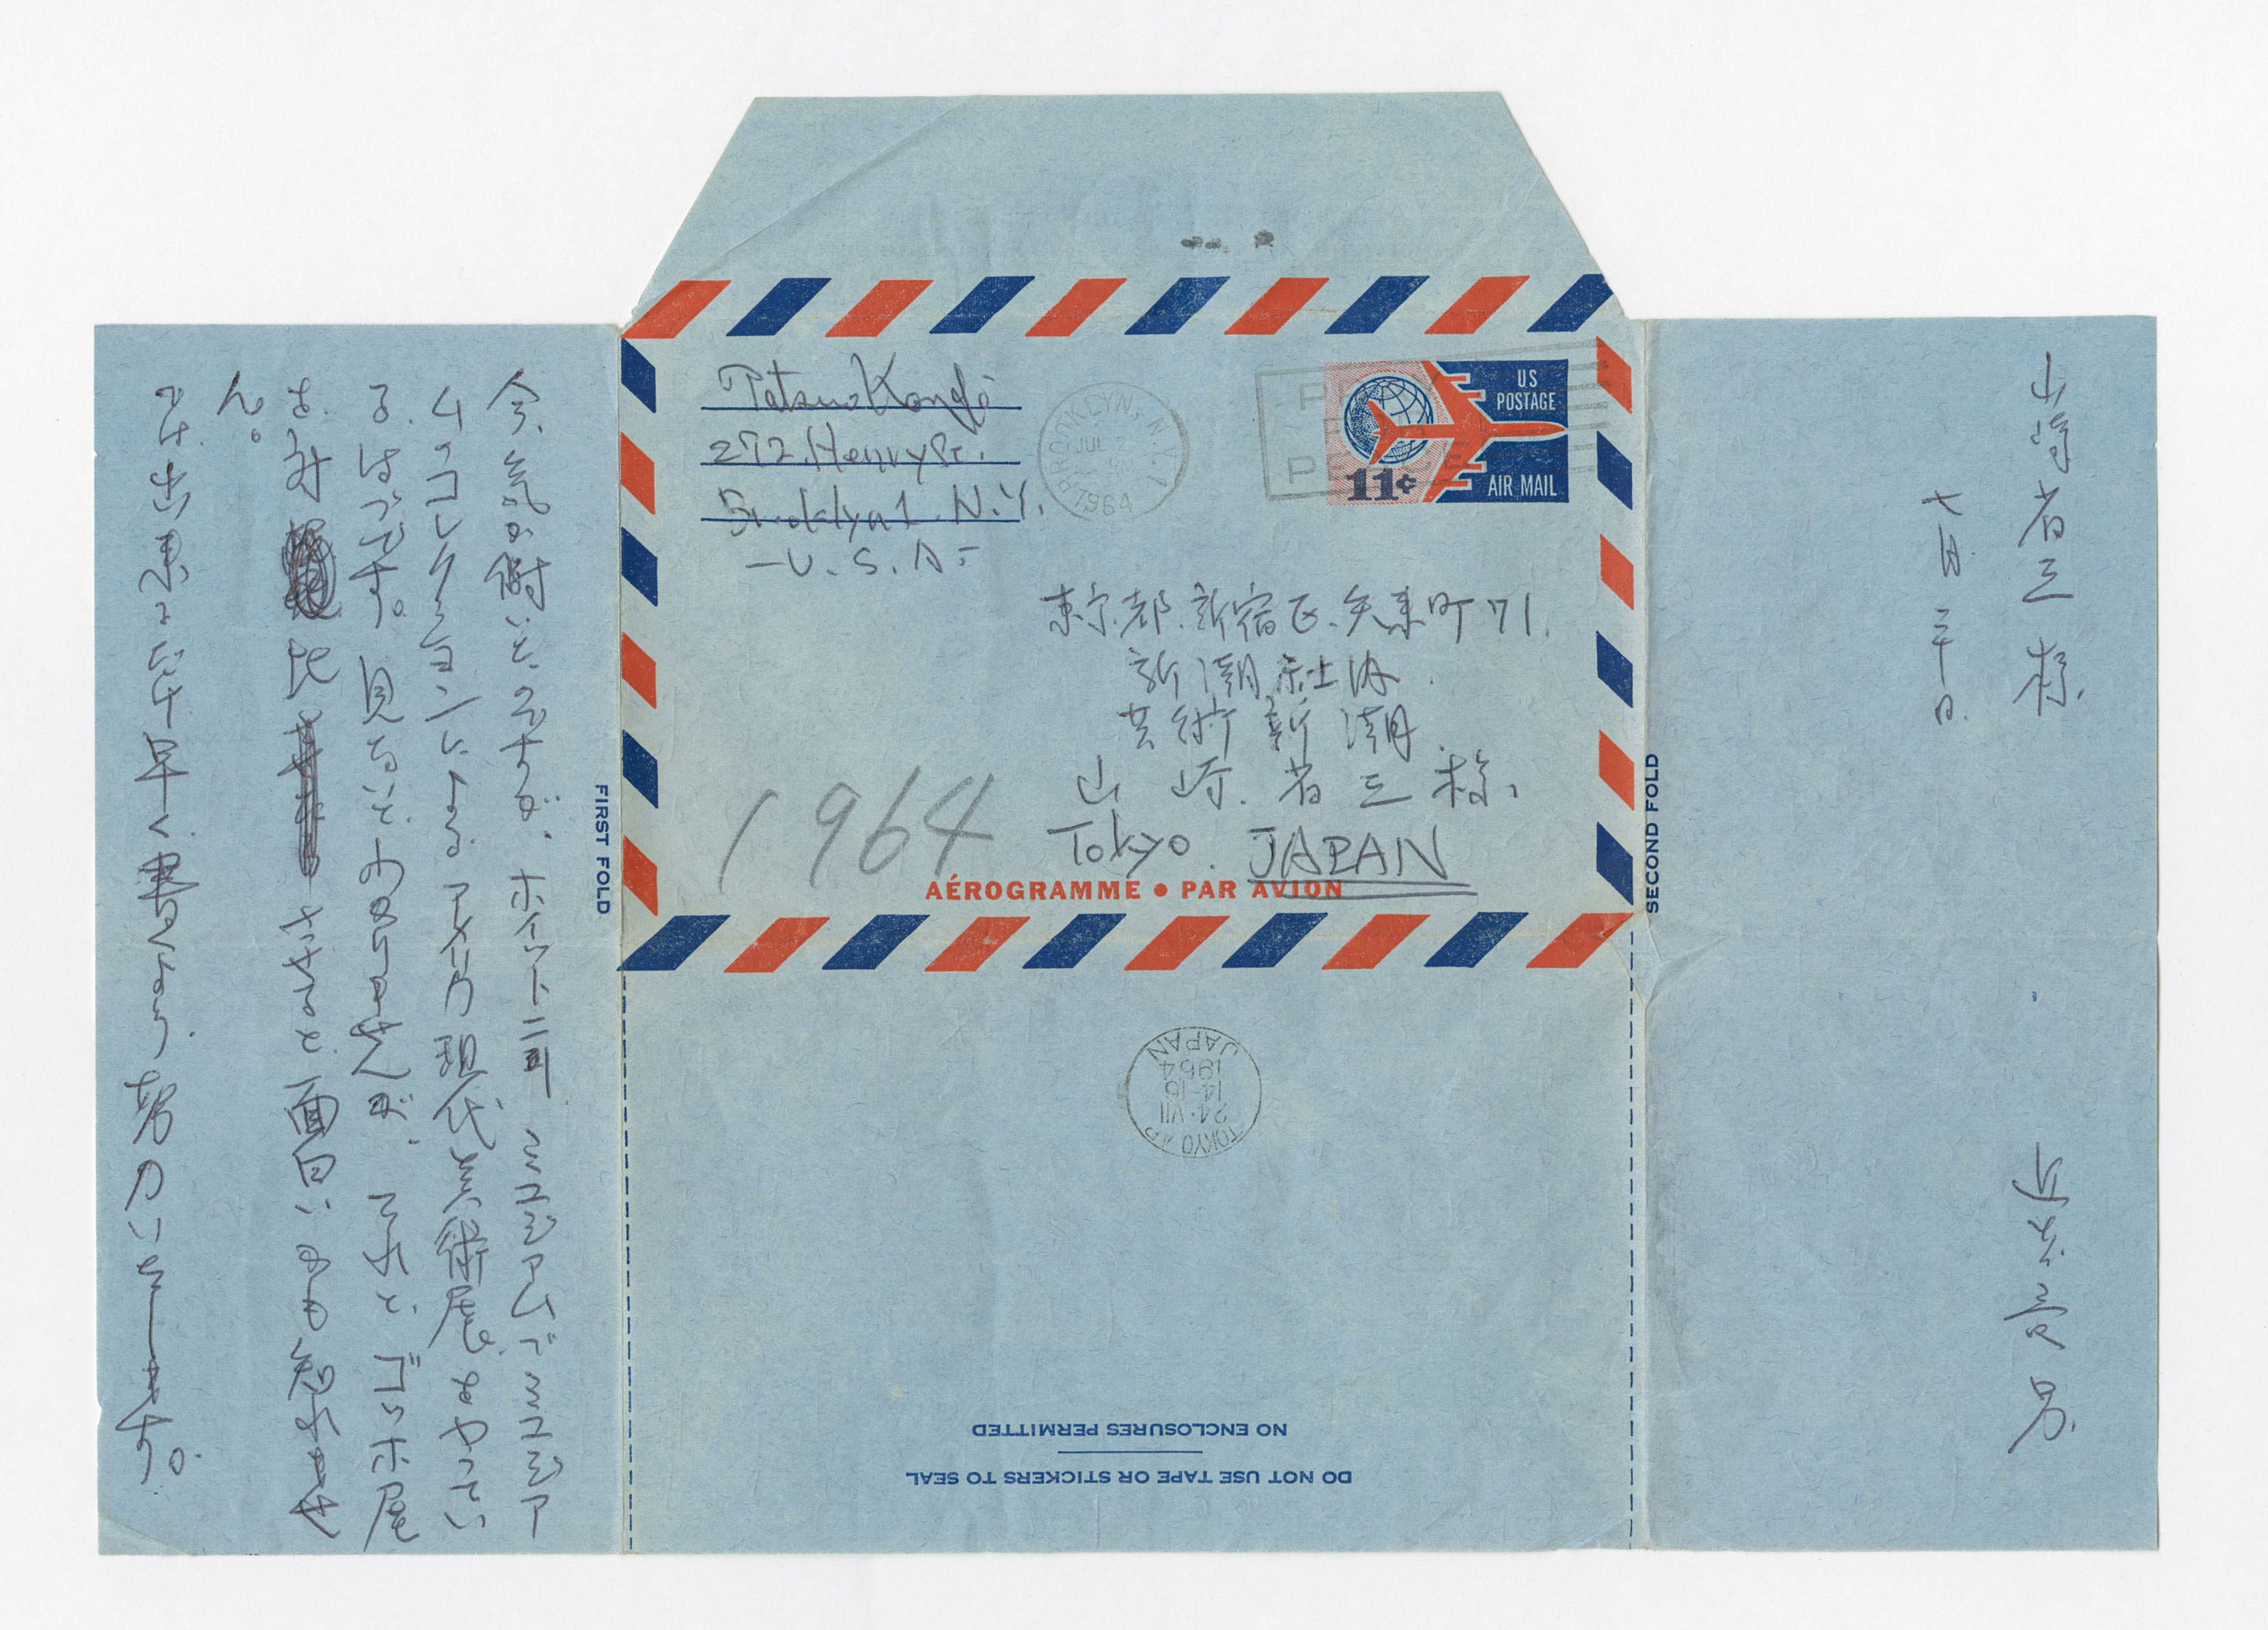 Tatsuo Kondo
272. Henry St.
Brooklyn 1. N.Y.
U.S.A.
BROOKLYN, N.Y. 1
JUL 2
1964
US
POSTAGE
11¢
AIR MAIL
東京都.新宿区.矢来町71.
新潮社内
芸術新潮
山崎省三様.
Tokyo. JAPAN
1964
AÉROGRAMME • PAR AVION
FIRST FOLD
SECOND FOLD
TOKYO AP
24・VII
14-16
1964
JAPAN
DO NOT USE TAPE OR STICKERS TO SEAL
NO ENCLOSURES PERMITTED
山崎省三様
七月二十日
近藤竜男
今、気が付いたのですが、ホイットニー ミュゼアムでミュゼア
ムのコレクションによるアメリカ現代美術展をやってい
るはづです。見ないとわかりませんが、それと、ゴッホ展
を対比させると面白いかも知れませ
ん。
では出来るだけ早く書くよう努力いたします。